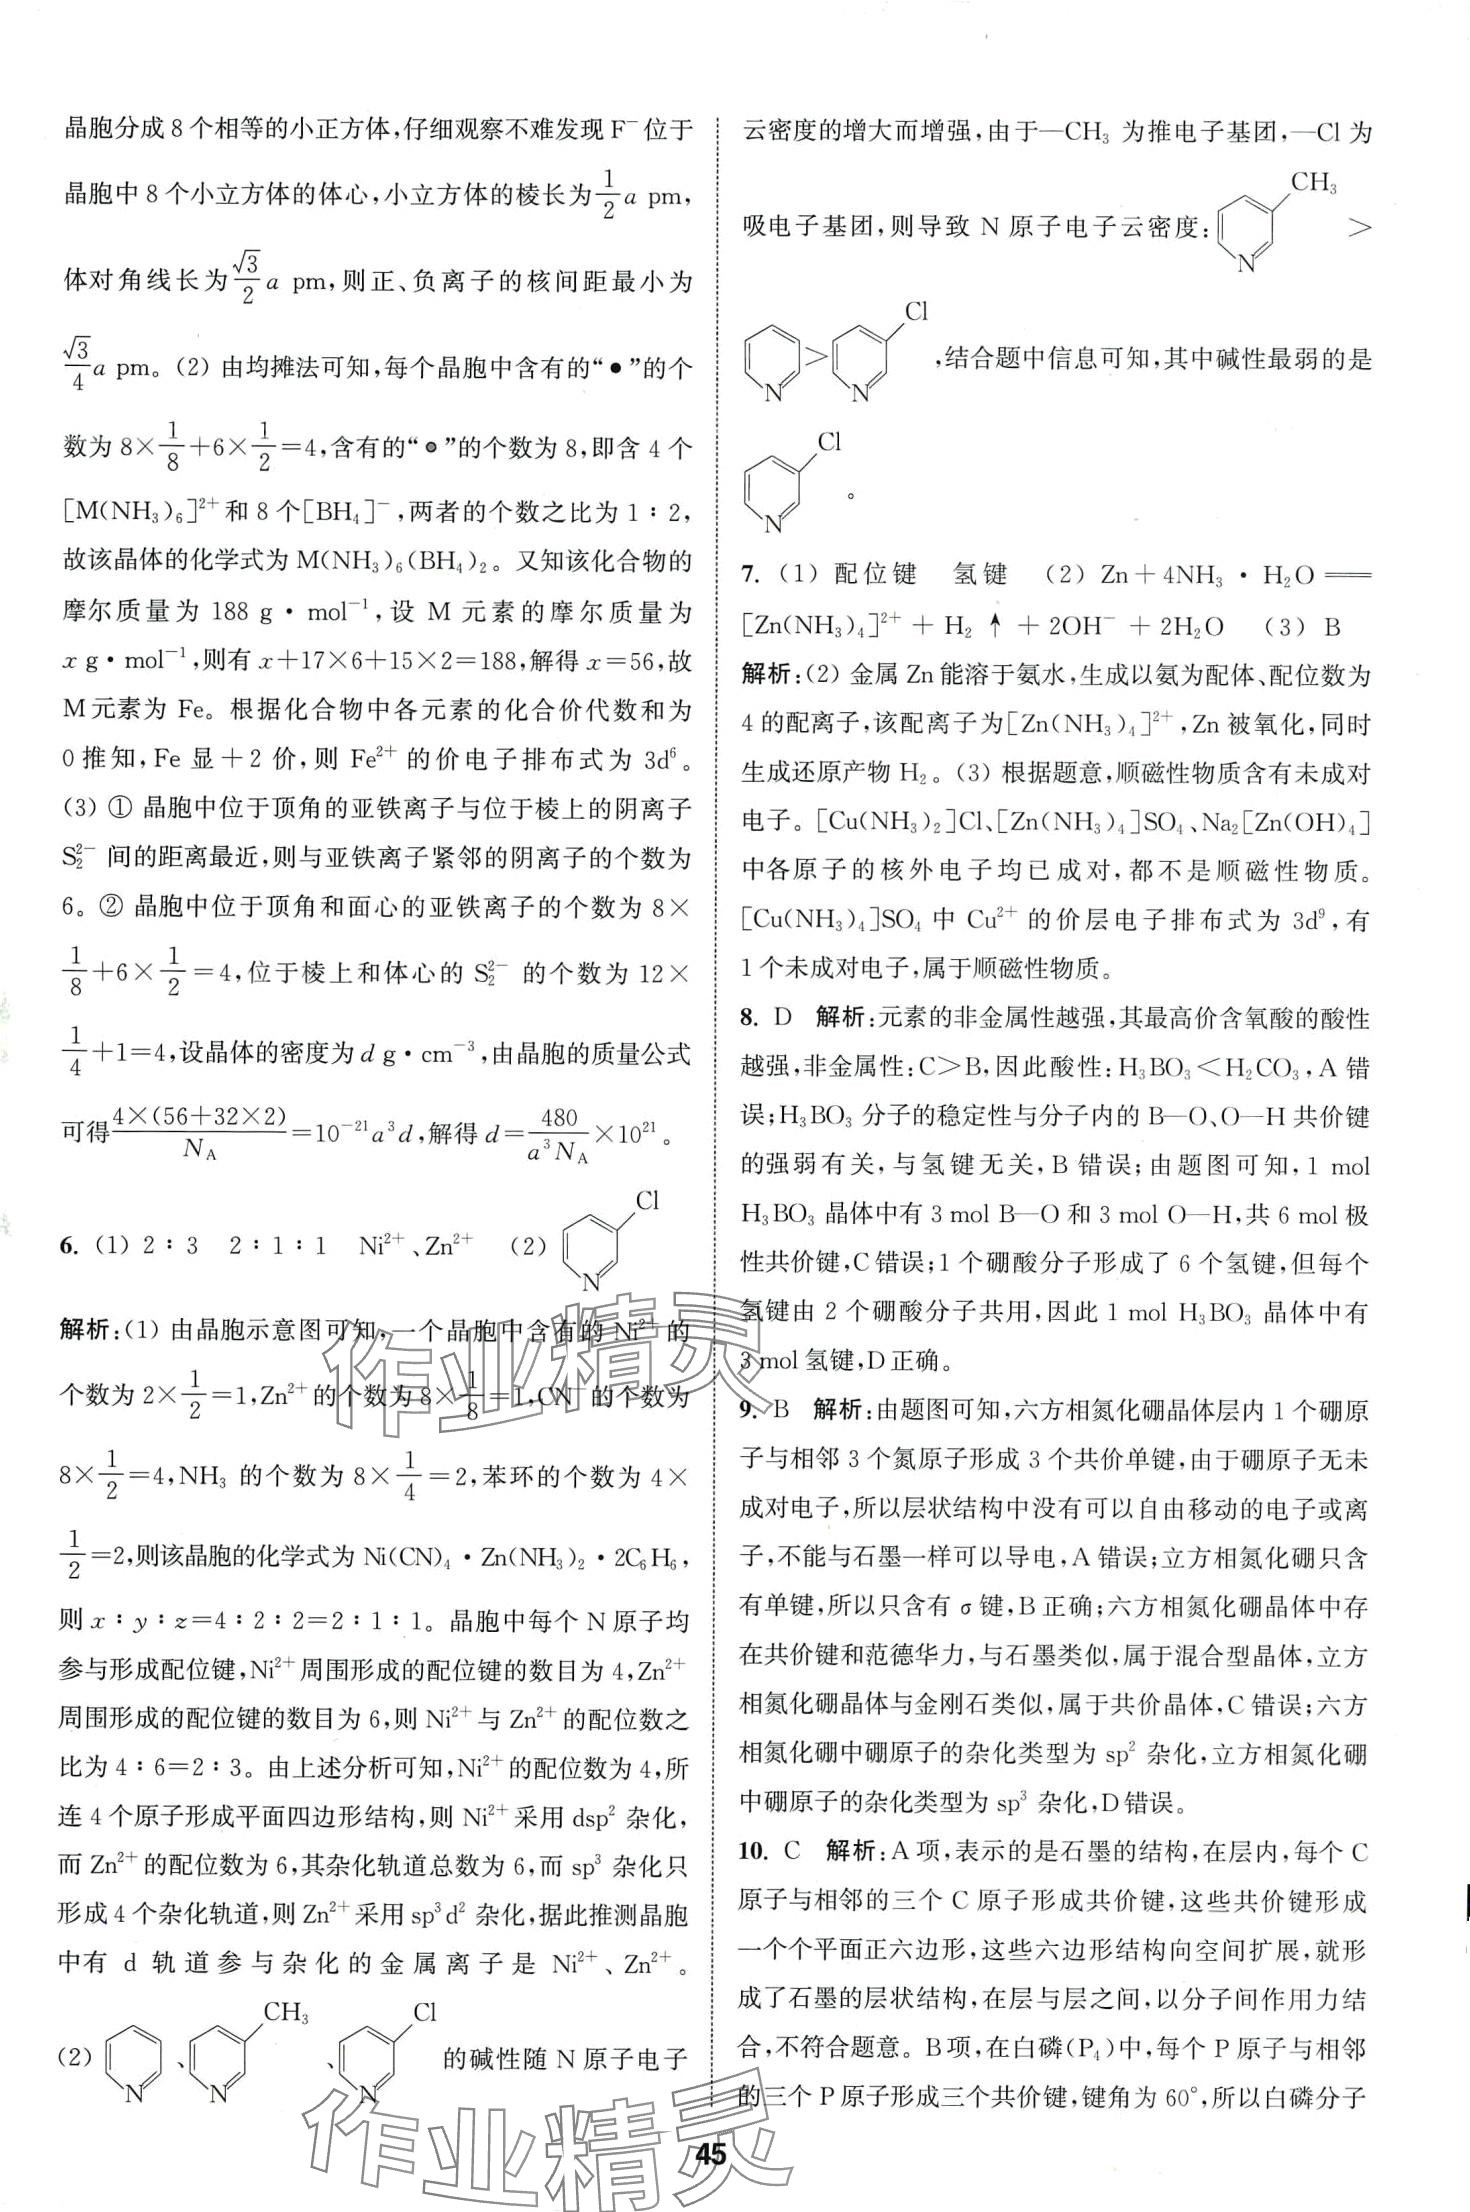 晶胞分成8个相等的小正方体,仔细观察不难发现F⁻位于
晶胞中8个小立方体的体心,小立方体的棱长为1/2 a pm,
体对角线长为√3/2 a pm,则正、负离子的核间距最小为
√3/4 a pm。(2) 由均摊法可知,每个晶胞中含有的“●”的个
数为8×1/8+6×1/2=4,含有的“●”的个数为8,即含4个
[M(NH₃)₆]²⁺和8个[BH₄]⁻,两者的个数之比为1∶2,
故该晶体的化学式为M(NH₃)₆(BH₄)₂。又知该化合物的
摩尔质量为188 g·mol⁻¹,设M元素的摩尔质量为
x g·mol⁻¹,则有x+17×6+15×2=188,解得x=56,故
M元素为Fe。根据化合物中各元素的化合价代数和为
0推知,Fe显+2价,则Fe²⁺的价电子排布式为3d⁶。
(3) ① 晶胞中位于顶角的亚铁离子与位于棱上的阴离子
S₂²⁻间的距离最近,则与亚铁离子紧邻的阴离子的个数为
6。② 晶胞中位于顶角和面心的亚铁离子的个数为8×
1/8+6×1/2=4,位于棱上和体心的S₂²⁻的个数为12×
1/4+1=4,设晶体的密度为d g·cm⁻³,由晶胞的质量公式
可得4×(56+32×2)/N_A=10⁻²¹a³d,解得d=480/(a³N_A)×10²¹。
Cl
6. (1) 2∶3 2∶1∶1 Ni²⁺、Zn²⁺ (2)
N
解析:(1) 由晶胞示意图可知,一个晶胞中含有的Ni²⁺的
个数为2×1/2=1,Zn²⁺的个数为8×1/8=1,CN⁻的个数为
8×1/2=4,NH₃的个数为8×1/4=2,苯环的个数为4×
1/2=2,则该晶胞的化学式为Ni(CN)₄·Zn(NH₃)₂·2C₆H₆,
则x∶y∶z=4∶2∶2=2∶1∶1。晶胞中每个N原子均
参与形成配位键,Ni²⁺周围形成的配位键的数目为4,Zn²⁺
周围形成的配位键的数目为6,则Ni²⁺与Zn²⁺的配位数之
比为4∶6=2∶3。由上述分析可知,Ni²⁺的配位数为4,所
连4个原子形成平面四边形结构,则Ni²⁺采用dsp²杂化,
而Zn²⁺的配位数为6,其杂化轨道总数为6,而sp³杂化只
形成4个杂化轨道,则Zn²⁺采用sp³d²杂化,据此推测晶胞
中有d轨道参与杂化的金属离子是Ni²⁺、Zn²⁺。
CH₃ Cl
(2) 、 、 的碱性随N原子电子
N N N
云密度的增大而增强,由于—CH₃为推电子基团,—Cl为
CH₃
吸电子基团,则导致N原子电子云密度: >
N
Cl
> ,结合题中信息可知,其中碱性最弱的是
N N
Cl
。
N
7. (1) 配位键 氢键 (2) Zn+4NH₃·H₂O══
[Zn(NH₃)₄]²⁺+H₂↑+2OH⁻+2H₂O (3) B
解析:(2) 金属Zn能溶于氨水,生成以氨为配体、配位数为
4的配离子,该配离子为[Zn(NH₃)₄]²⁺,Zn被氧化,同时
生成还原产物H₂。(3) 根据题意,顺磁性物质含有未成对
电子。[Cu(NH₃)₂]Cl、[Zn(NH₃)₄]SO₄、Na₂[Zn(OH)₄]
中各原子的核外电子均已成对,都不是顺磁性物质。
[Cu(NH₃)₄]SO₄中Cu²⁺的价层电子排布式为3d⁹,有
1个未成对电子,属于顺磁性物质。
8. D 解析:元素的非金属性越强,其最高价含氧酸的酸性
越强,非金属性:C>B,因此酸性:H₃BO₃<H₂CO₃,A错
误;H₃BO₃分子的稳定性与分子内的B—O、O—H共价键
的强弱有关,与氢键无关,B错误;由题图可知,1 mol
H₃BO₃晶体中有3 mol B—O和3 mol O—H,共6 mol极
性共价键,C错误;1个硼酸分子形成了6个氢键,但每个
氢键由2个硼酸分子共用,因此1 mol H₃BO₃晶体中有
3 mol氢键,D正确。
9. B 解析:由题图可知,六方相氮化硼晶体层内1个硼原
子与相邻3个氮原子形成3个共价单键,由于硼原子无未
成对电子,所以层状结构中没有可以自由移动的电子或离
子,不能与石墨一样可以导电,A错误;立方相氮化硼只含
有单键,所以只含有σ键,B正确;六方相氮化硼晶体中存
在共价键和范德华力,与石墨类似,属于混合型晶体,立方
相氮化硼晶体与金刚石类似,属于共价晶体,C错误;六方
相氮化硼中硼原子的杂化类型为sp²杂化,立方相氮化硼
中硼原子的杂化类型为sp³杂化,D错误。
10. C 解析:A项,表示的是石墨的结构,在层内,每个C
原子与相邻的三个C原子形成共价键,这些共价键形成
一个个平面正六边形,这些六边形结构向空间扩展,就形
成了石墨的层状结构,在层与层之间,以分子间作用力结
合,不符合题意。B项,在白磷(P₄)中,每个P原子与相邻
的三个P原子形成三个共价键,键角为60°,所以白磷分子
45
作业精灵
作业精灵